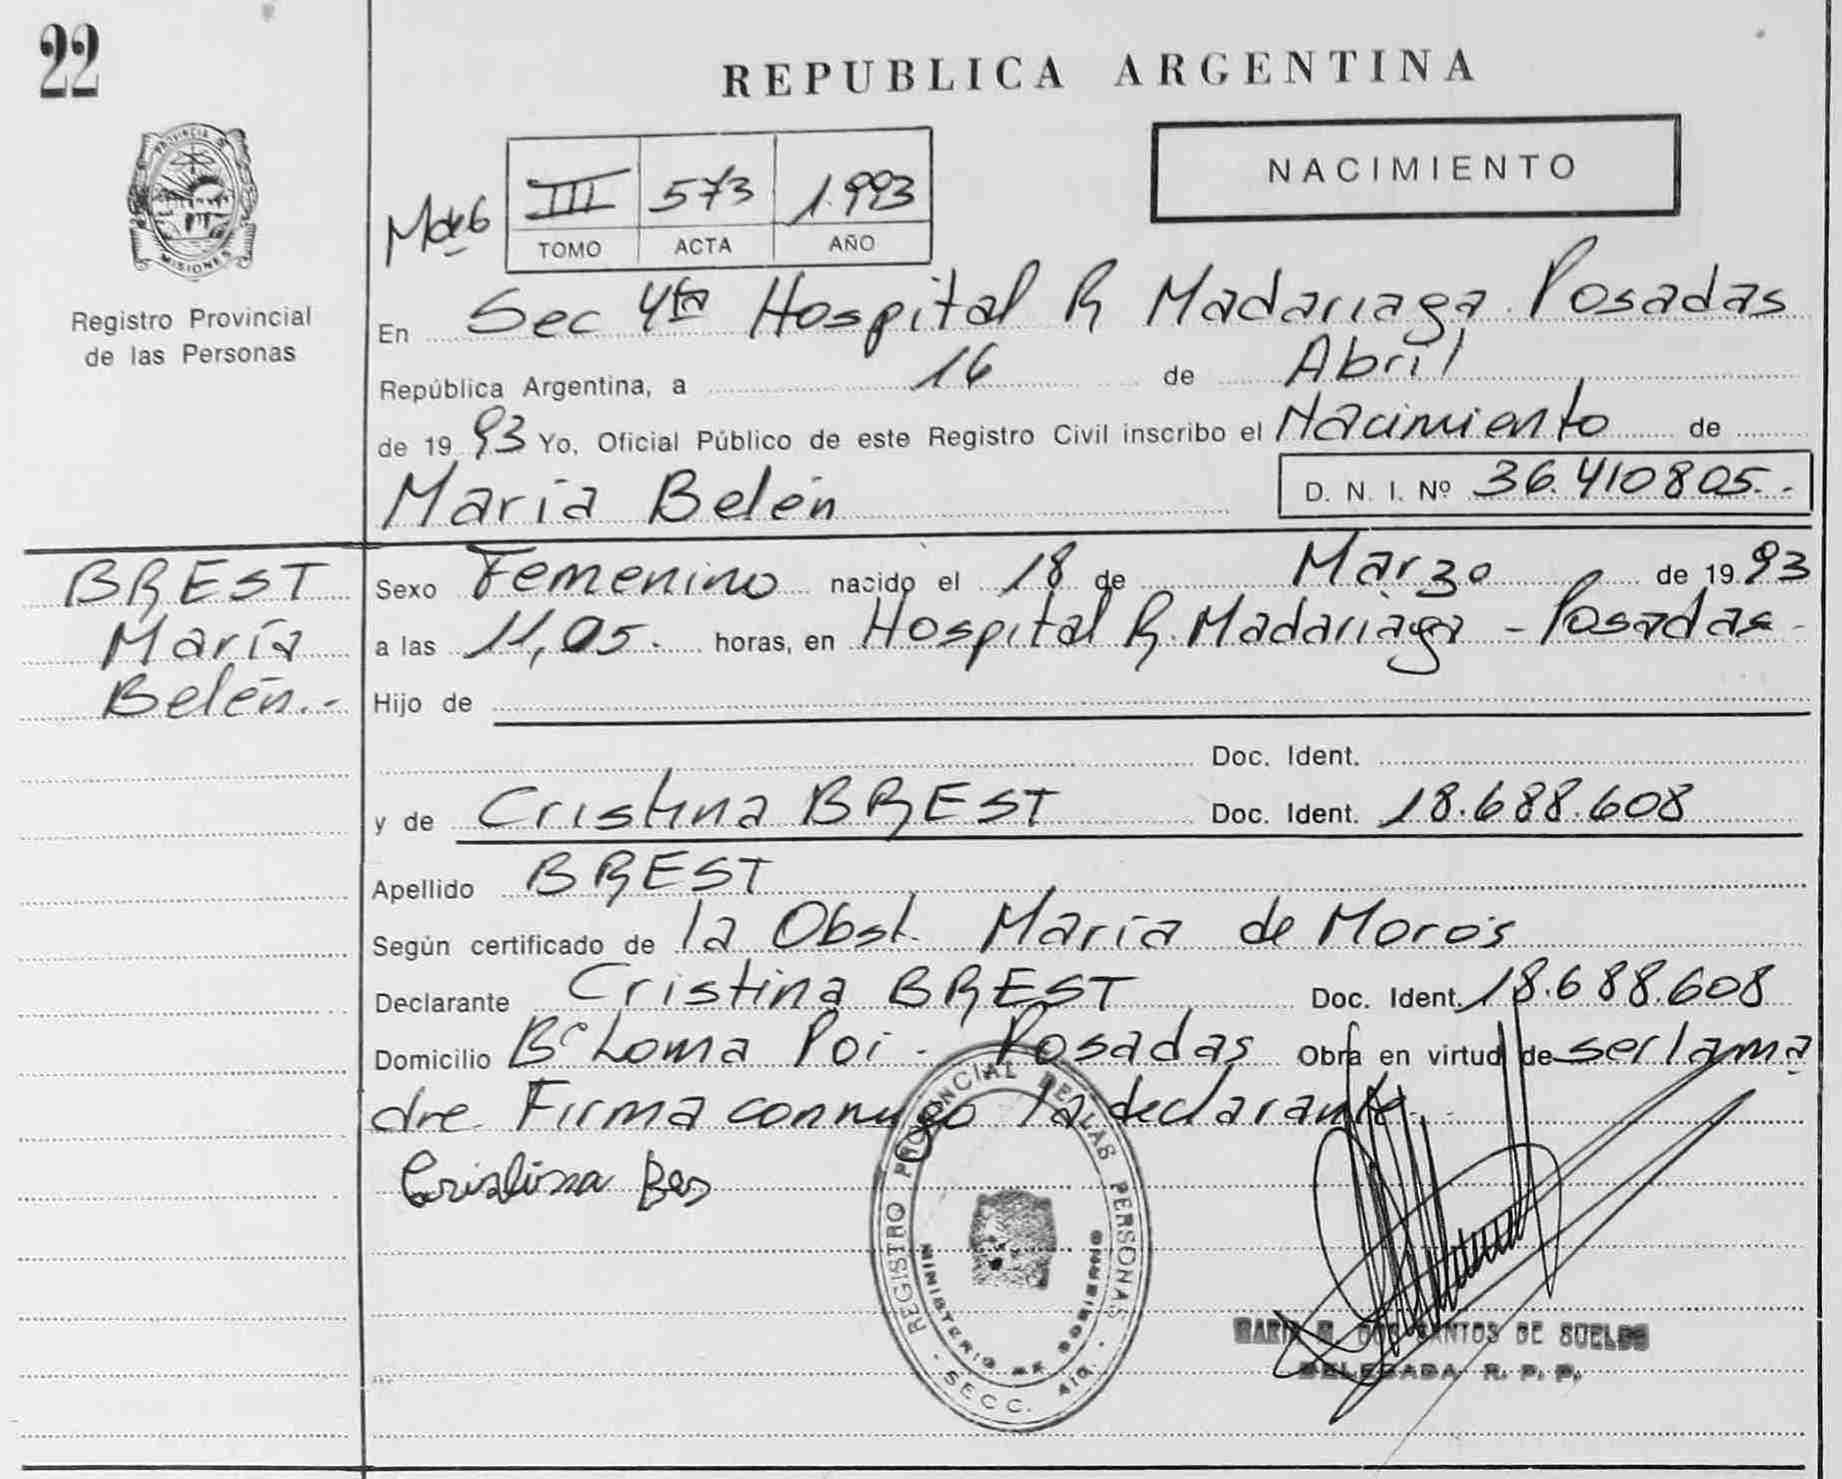 22
REPUBLICA ARGENTINA
PROVINCIA DE
MISIONES
Registro Provincial
de las Personas
III 573 1.993
TOMO ACTA AÑO
NACIMIENTO
En Sec 4ta Hospital R Madariaga Posadas
República Argentina, a 16 de Abril
de 1993 Yo, Oficial Público de este Registro Civil inscribo el Nacimiento de
María Belén D. N. I. Nº 36.410805.-
BREST
María
Belén.-
Sexo Femenino nacido el 18 de Marzo de 1993
a las 11,05.- horas, en Hospital R. Madariaga - Posadas -
Hijo de
Doc. Ident.
y de Cristina BREST Doc. Ident. 18.688.608
Apellido BREST
Según certificado de la Obst. María de Moro's
Declarante Cristina BREST Doc. Ident. 18.688.608
Domicilio Bº Loma Poi - Posadas Obra en virtud de ser la ma
dre Firma conmigo la declarante
Cristina Bes
REGISTRO PROVINCIAL DE LAS PERSONAS
MINISTERIO DE GOBIERNO
- SECC. 4ta. -
MARIA DOS SANTOS DE SUELDO
DELEGADA R. P. P.